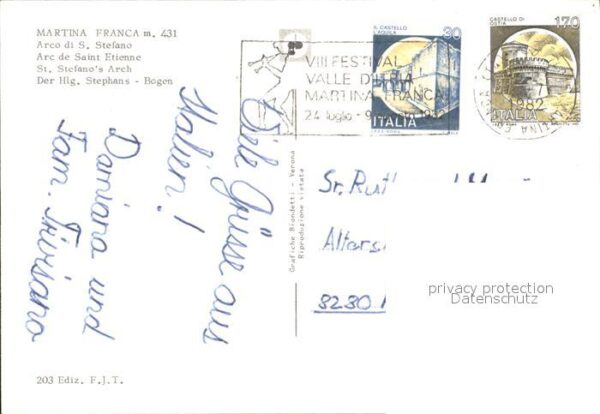 MARTINA FRANCA m. 431
Arco di S. Stefano
Arc de Saint Etienne
St. Stefano's Arch
Der Hlg. Stephans - Bogen
Viele Grüsse aus
Italien!
Damiana und
Fam. Trivisano
203 Ediz. F.J.T.
Grafiche Biondetti - Verona
Riproduzione vietata
VIII FESTIVAL
VALLE D'ITRIA
MARTINA FRANCA
24 luglio - 9
IL CASTELLO
L'AQUILA
30
ITALIA
CASTELLO DI
OSTIA
170
ITALIA
1982
MARTINA FRANCA
Sr. Ruth
Alters
8280
privacy protection
Datenschutz